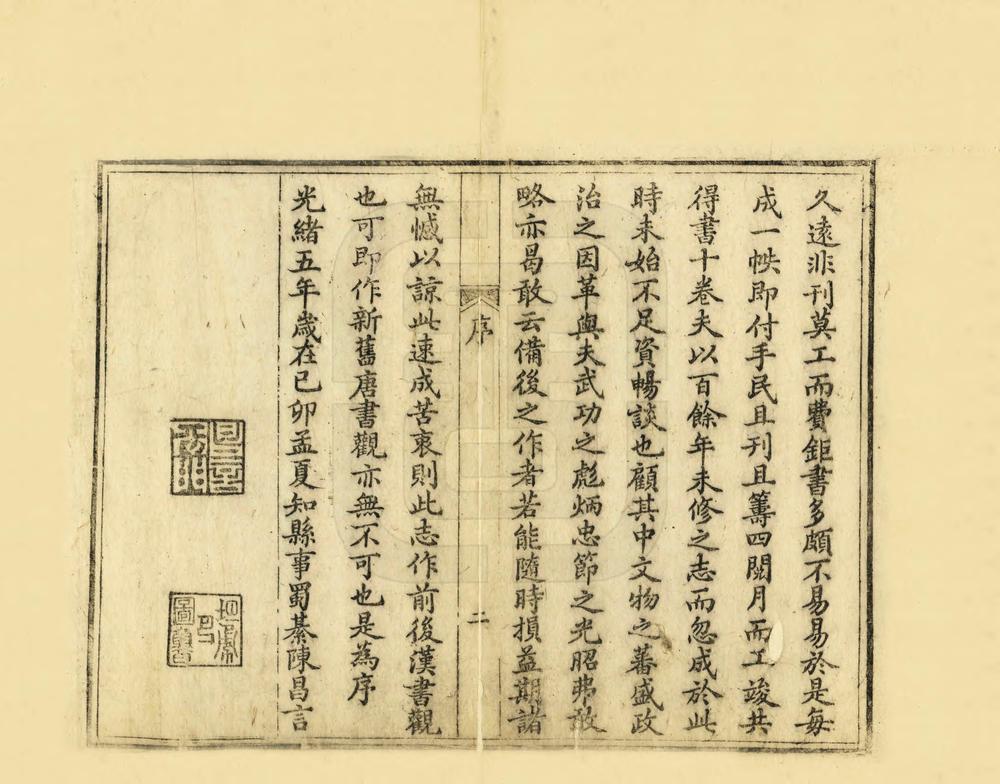 久遠非刊莫工而費鉅書多頗不易易於是每
成一帙即付手民且刊且籌四閱月而工竣共
得書十卷夫以百餘年未修之志而忽成於此
時未始不足資暢談也顧其中文物之蕃盛政
治之因革與夫武功之彪炳忠節之光昭弗敢
略亦曷敢云備後之作者若能隨時損益期諸
序
二
無憾以諒此速成苦衷則此志作前後漢書觀
也可即作新舊唐書觀亦無不可也是為序
光緒五年歲在己卯孟夏知縣事蜀綦陳昌言